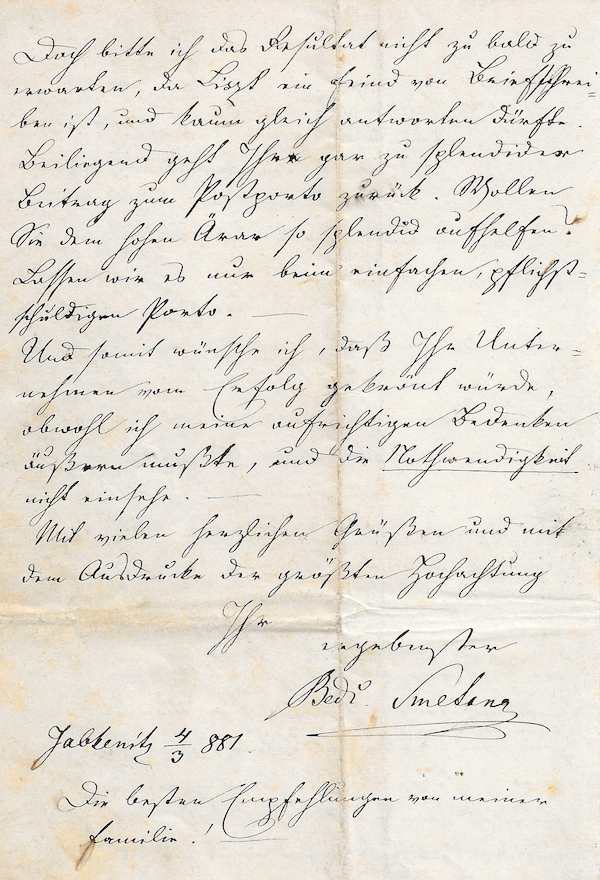 Doch bitte ich das Resultat nicht zu bald zu
erwarten, da Liszt ein Feind von Briefschrei-
ben ist, und kaum gleich antworten dürfte.
Beiliegend geht Ihr gar zu splendider
Beitrag zum Postporto zurück. Wollen
Sie dem hohen Ärar so splendid aufhelfen?
Lassen wir es nur beim einfachen, pflicht-
schuldigen Porto. —
Und somit wünsche ich, daß Ihr Unter-
nehmen vom Erfolg gekrönt würde,
obwohl ich meine aufrichtigen Bedenken
äußern mußte, und die Nothwendigkeit
nicht einsehe. —
Mit vielen herzlichen Grüßen und mit
dem Ausdrucke der größten Hochachtung
Ihr
ergebenster
Bedř. Smetana
Jabkenitz 4/3 881.
Die besten Empfehlungen von meiner
Familie!